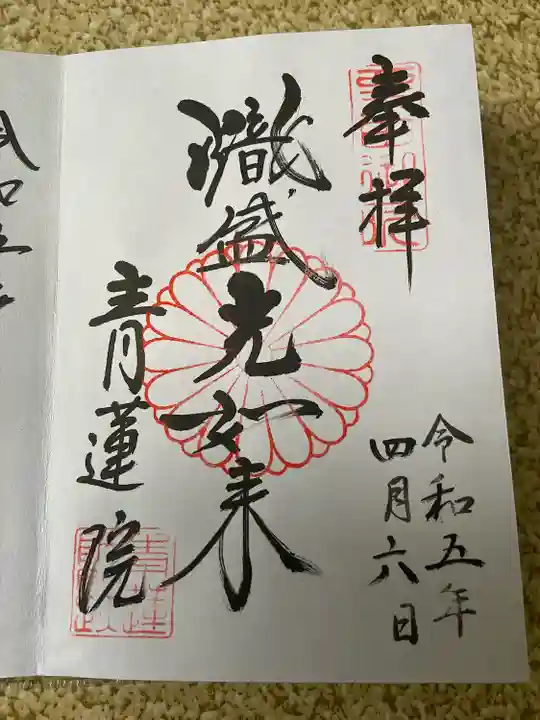 奉拝
令和五年
四月六日
熾盛光如来
青蓮院